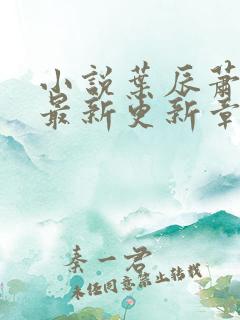 小说叶辰萧
最新更新章
秦一君
未经同意禁止转载